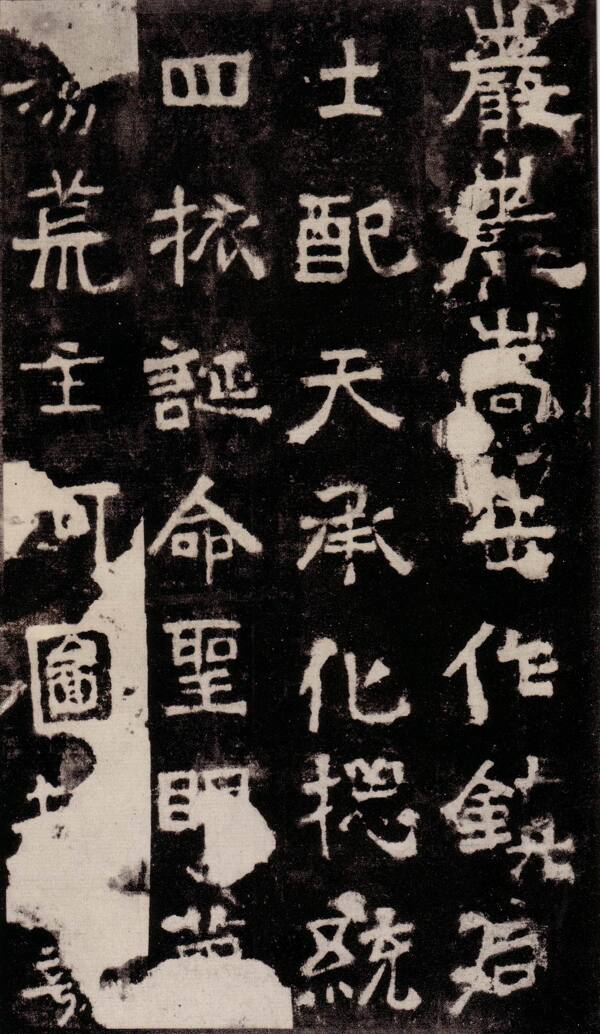 巖巖嵩岳作鎮后
土配天承化揔統
四誕命聖眀
荒主河圖